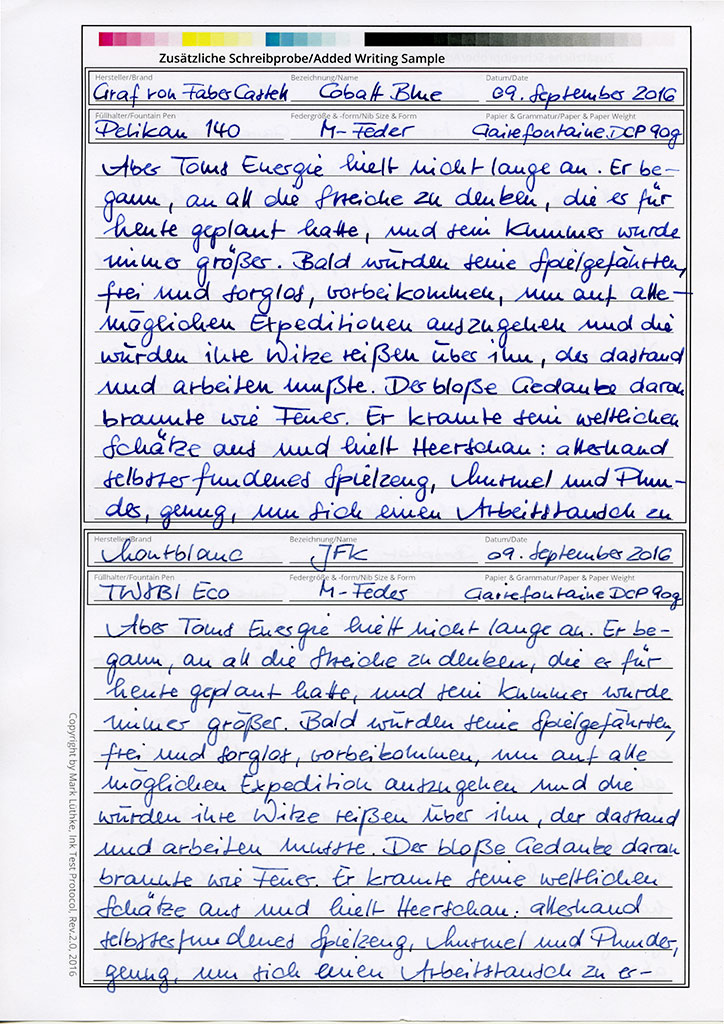 Zusätzliche Schreibprobe/Added Writing Sample
Hersteller/Brand Bezeichnung/Name Datum/Date
Graf von Faber Castell Cobalt Blue 09. September 2016
Füllhalter/Fountain Pen Federgröße & -form/Nib Size & Form Papier & Grammatur/Paper & Paper Weight
Pelikan 140 M-Feder Clairefontaine DCP 90g
Aber Toms Energie hielt nicht lange an. Er be-
gann, an all die Streiche zu denken, die er für
heute geplant hatte, und sein Kummer wurde
immer größer. Bald würden seine Spielgefährten,
frei und sorglos, vorbeikommen, um auf alle-
möglichen Expeditionen auszugehen und die
würden ihre Witze reißen über ihn, der dastand
und arbeiten mußte. Der bloße Gedanke daran
brannte wie Feuer. Er kramte sein weltlichen
Schätze aus und hielt Heerschau: allerhand
selbsterfundenes Spielzeug, Murmel und Plun-
der, genug, um sich einen Arbeitstausch zu
Hersteller/Brand Bezeichnung/Name Datum/Date
Montblanc JFK 09. September 2016
Füllhalter/Fountain Pen Federgröße & -form/Nib Size & Form Papier & Grammatur/Paper & Paper Weight
TWSBI Eco M-Feder Clairefontaine DCP 90g
Aber Toms Energie hielt nicht lange an. Er be-
gann, an all die Streiche zu denken, die er für
heute geplant hatte, und sein Kummer wurde
immer größer. Bald würden seine Spielgefährten,
frei und sorglos, vorbeikommen, um auf alle
möglichen Expedition auszugehen und die
würden ihre Witze reißen über ihn, der dastand
und arbeiten musste. Der bloße Gedanke daran
brannte wie Feuer. Er kramte seine weltlichen
Schätze aus und hielt Heerschau: allerhand
selbsterfundenes Spielzeug, Murmel und Plunder,
genug, um sich einen Arbeitstausch zu er-
Copyright by Mark Lüthke, Ink Test Protocol, Rev.2.0, 2016